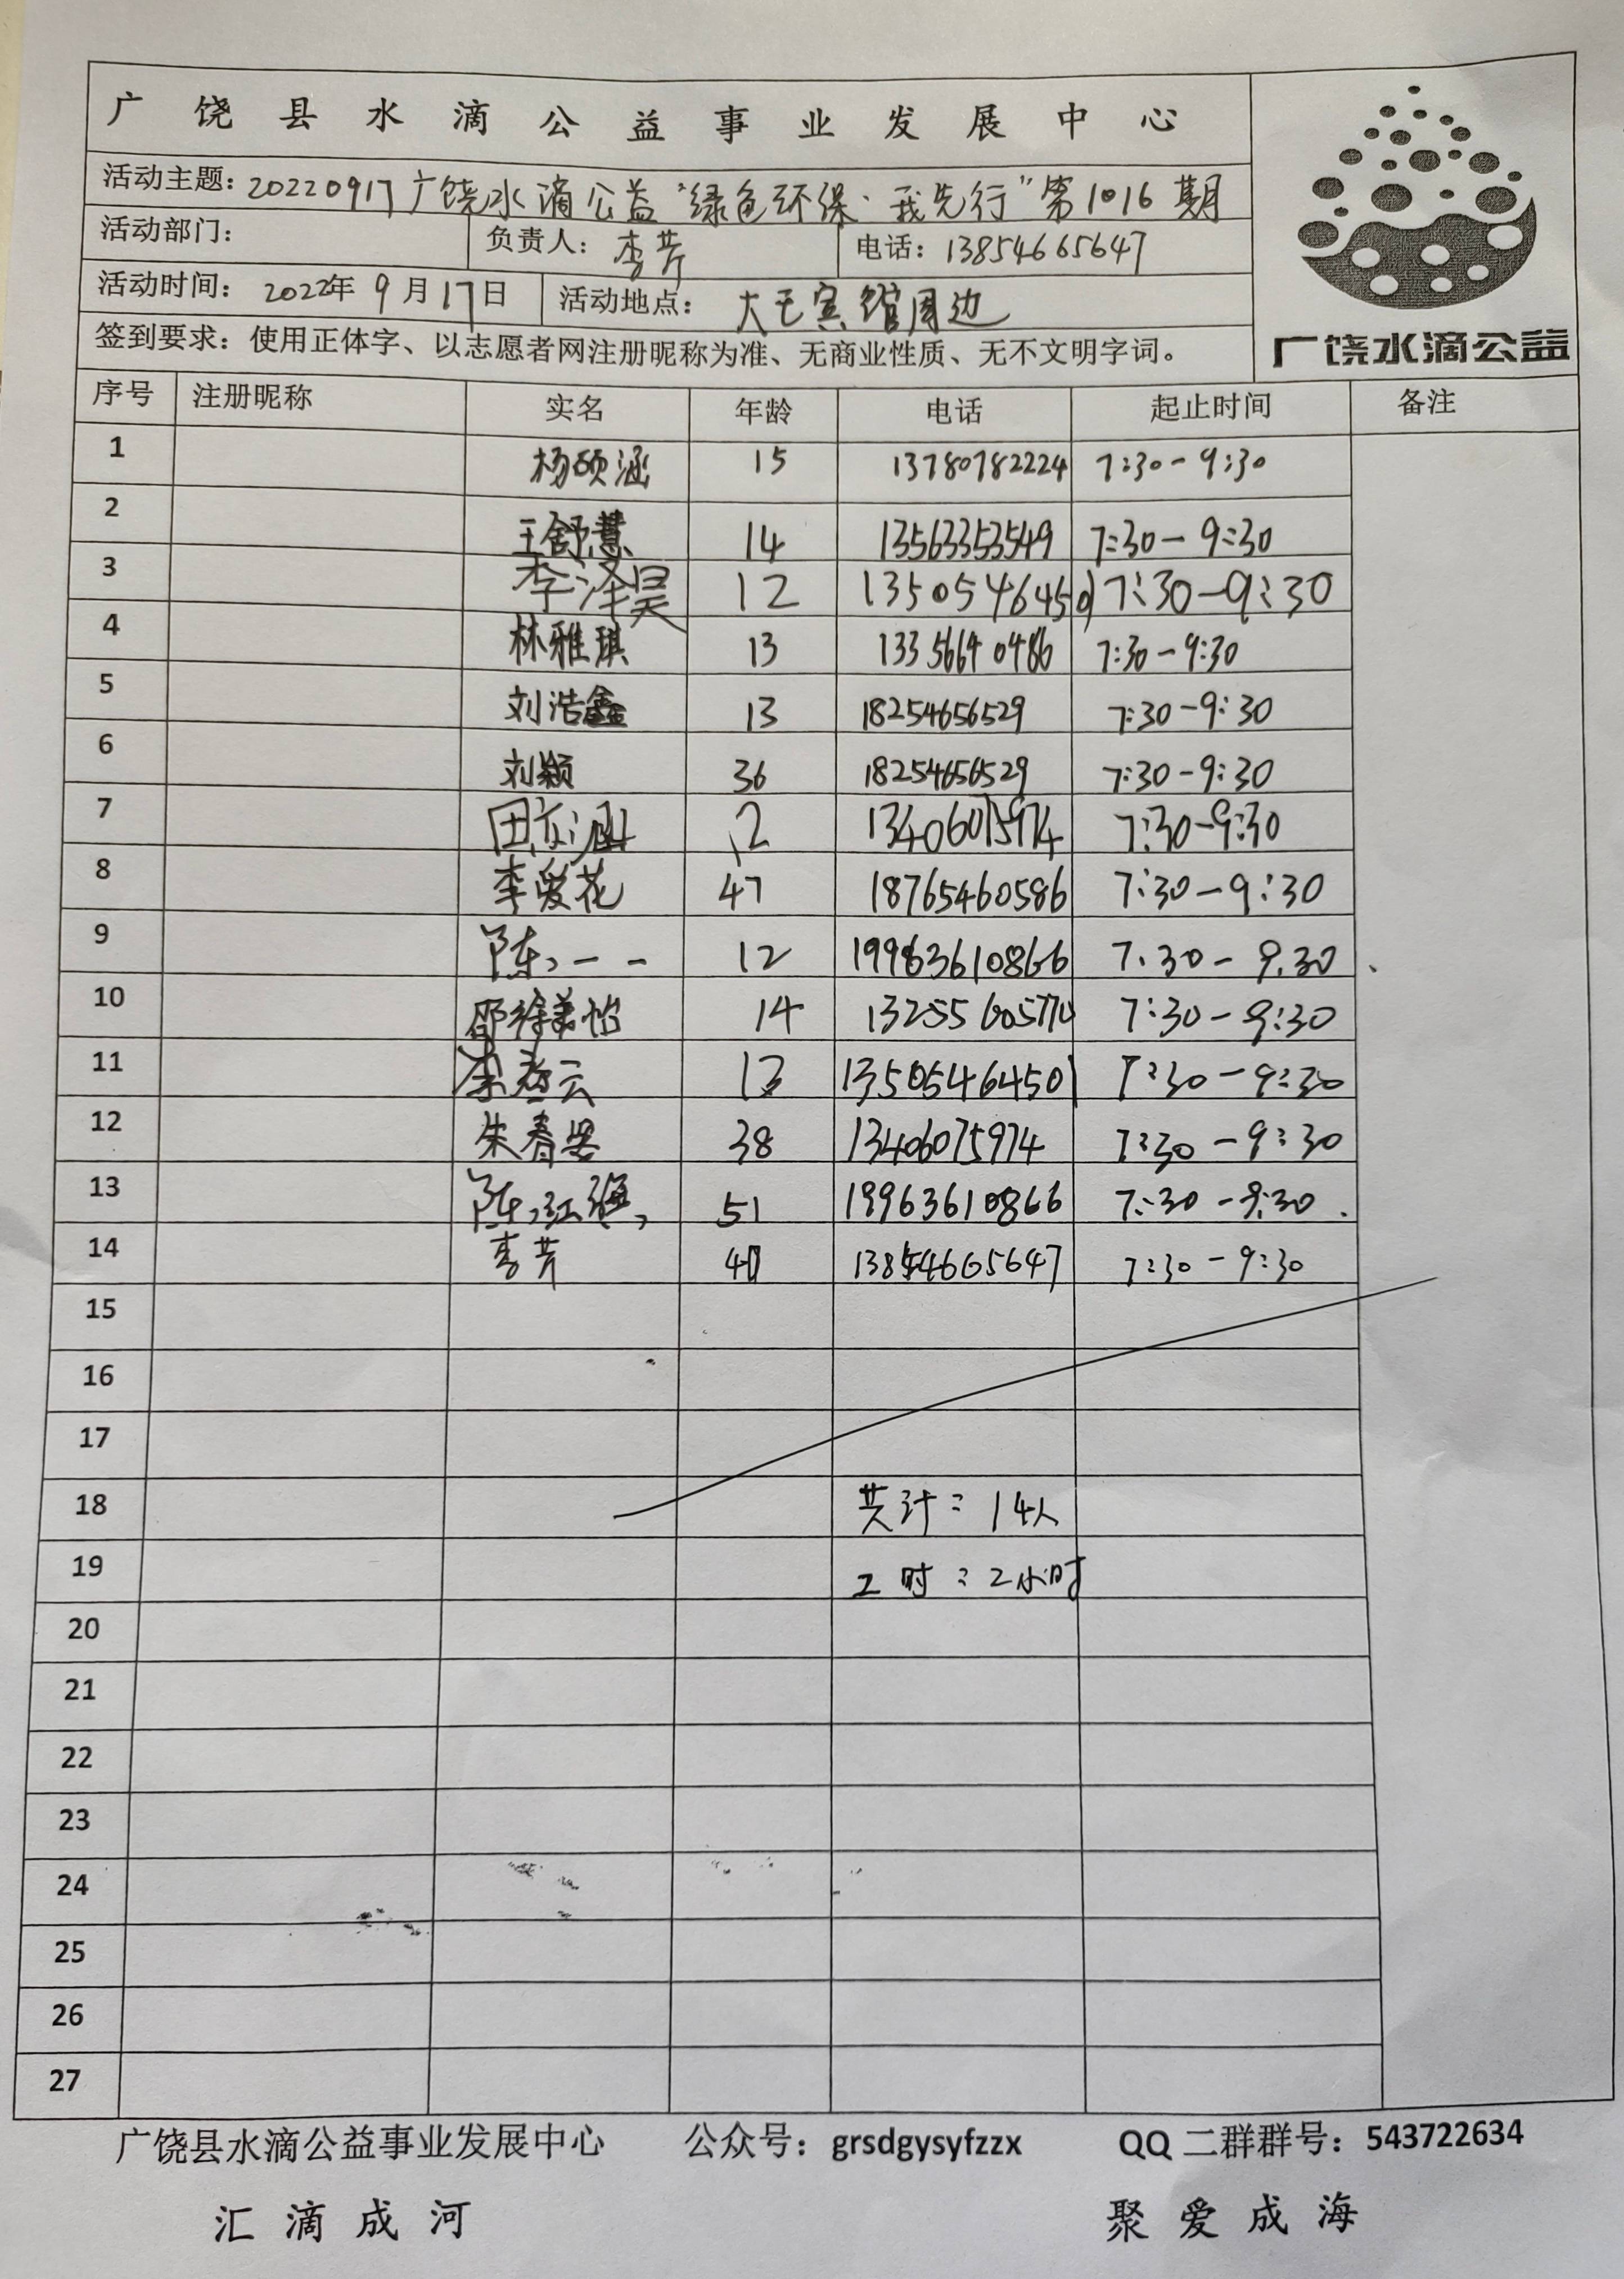 广饶县水滴公益事业发展中心
活动主题：20220917广饶水滴公益“绿色环保·我先行”第1016期
活动部门： 负责人：李芳 电话：13854665647
活动时间：2022年9月17日 活动地点：大王宾馆周边
签到要求：使用正体字、以志愿者网注册昵称为准、无商业性质、无不文明字词。
广饶水滴公益
序号 注册昵称 实名 年龄 电话 起止时间 备注
1 杨硕涵 15 13780782224 7:30-9:30
2 王舒慧 14 13563353549 7:30-9:30
3 李泽昊 12 13505464501 7:30-9:30
4 林雅琪 13 13356640486 7:30-9:30
5 刘浩鑫 13 18254656529 7:30-9:30
6 刘颖 36 18254656529 7:30-9:30
7 田 涵 12 13406075974 7:30-9:30
8 李爱花 47 18765460586 7:30-9:30
9 陈一一 12 19963610866 7:30-9:30
10 邵徐美怡 14 7:30-9:30
11 李 云 13 13505464501 7:30-9:30
12 朱春 38 13406075974 7:30-9:30
13 陈红 51 19963610866 7:30-9:30
14 李芳 13854665647 7:30-9:30
15
16
17
18 共计：14人
19 工时：2小时
20
21
22
23
24
25
26
27
广饶县水滴公益事业发展中心 公众号：grsdgysyfzzx QQ二群群号：543722634
汇滴成河 聚爱成海